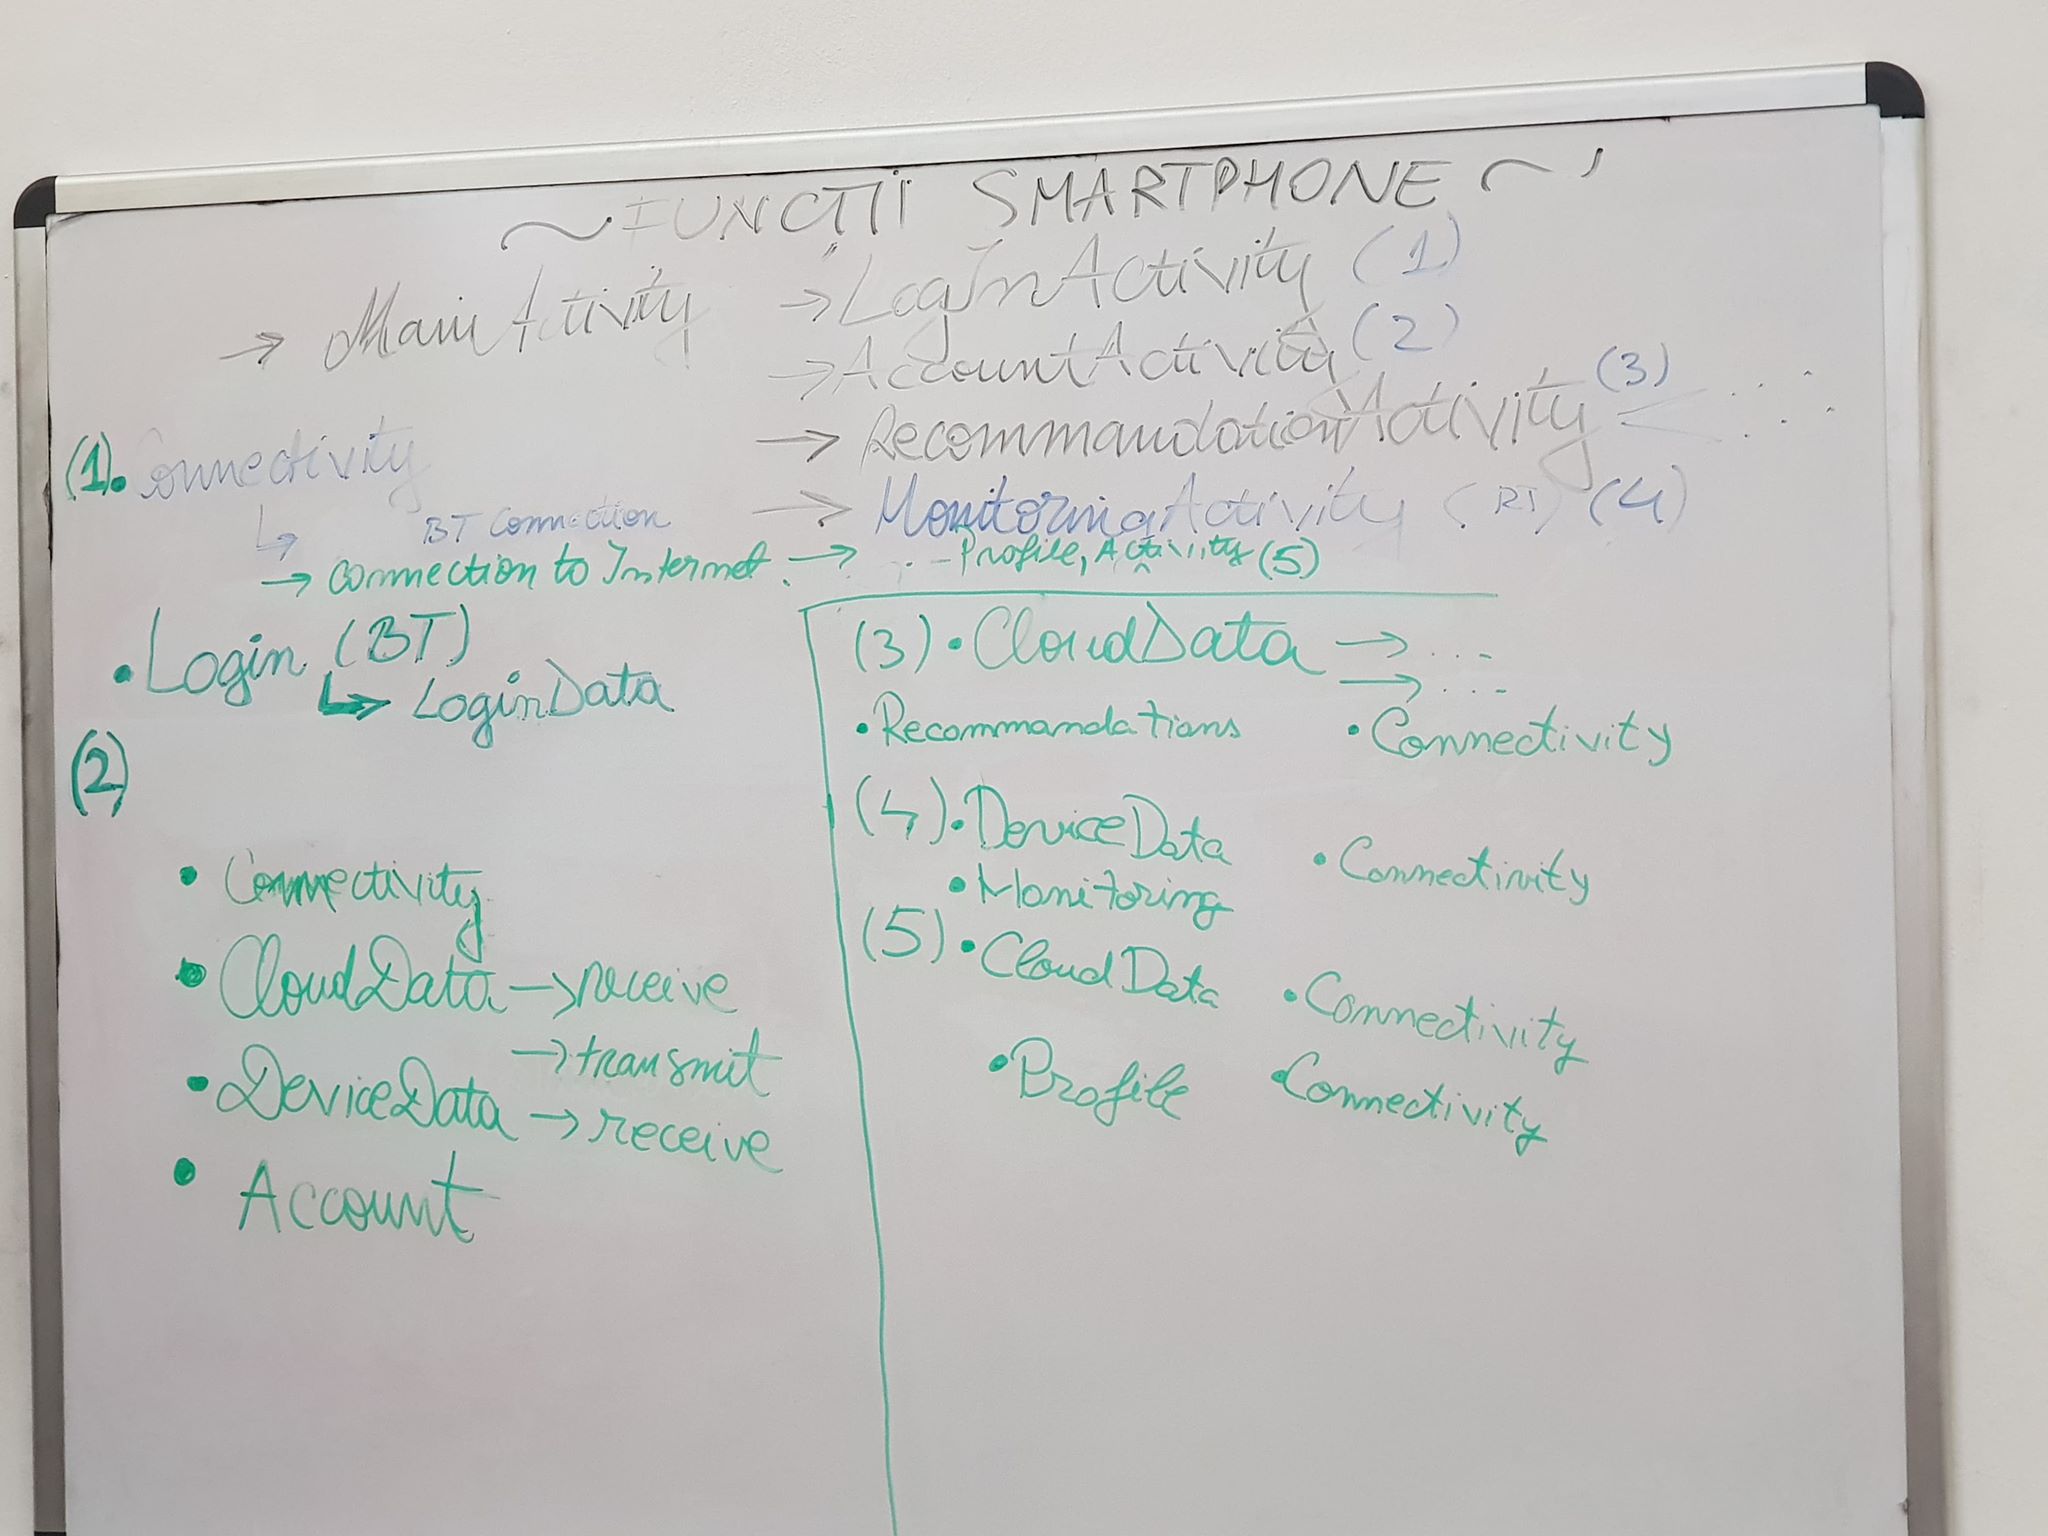 ~ FUNCȚII SMARTPHONE ~
→ MainActivity → LogInActivity (1)
→ AccountActivity (2)
→ RecommandationActivity (3) < ...
→ MonitoringActivity (RT) (4)
→ ... - Profile, Activity (5)
(1). Connectivity
↳ BT Connection
→ connection to Internet
• Login (BT)
↳ LoginData
(2)
• Connectivity
• CloudData → receive
→ transmit
• DeviceData → receive
• Account
(3) • CloudData → ...
→ ...
• Recommandations • Connectivity
(4) • DeviceData • Connectivity
• Monitoring
(5) • CloudData • Connectivity
• Profile • Connectivity